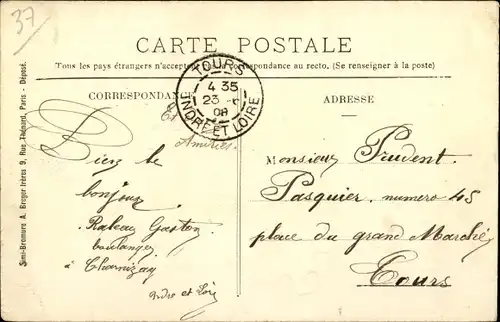 37
CARTE POSTALE
Tous les pays étrangers n'acceptent pas la correspondance au recto. (Se renseigner à la poste)
TOURS
4 35
23
08
INDRE ET LOIRE
CORRESPONDANCE
Et
Amitiés.
Bien le
bonjour
Rabeau Gaston
boulanger
à Charnizay
Indre et Loire
ADRESSE
Monsieur Prudent.
Pasquier. numero 45
place du grand Marché
Tours
Simi-Bromure A. Breger frères 9, Rue Thénard, Paris - Déposé.